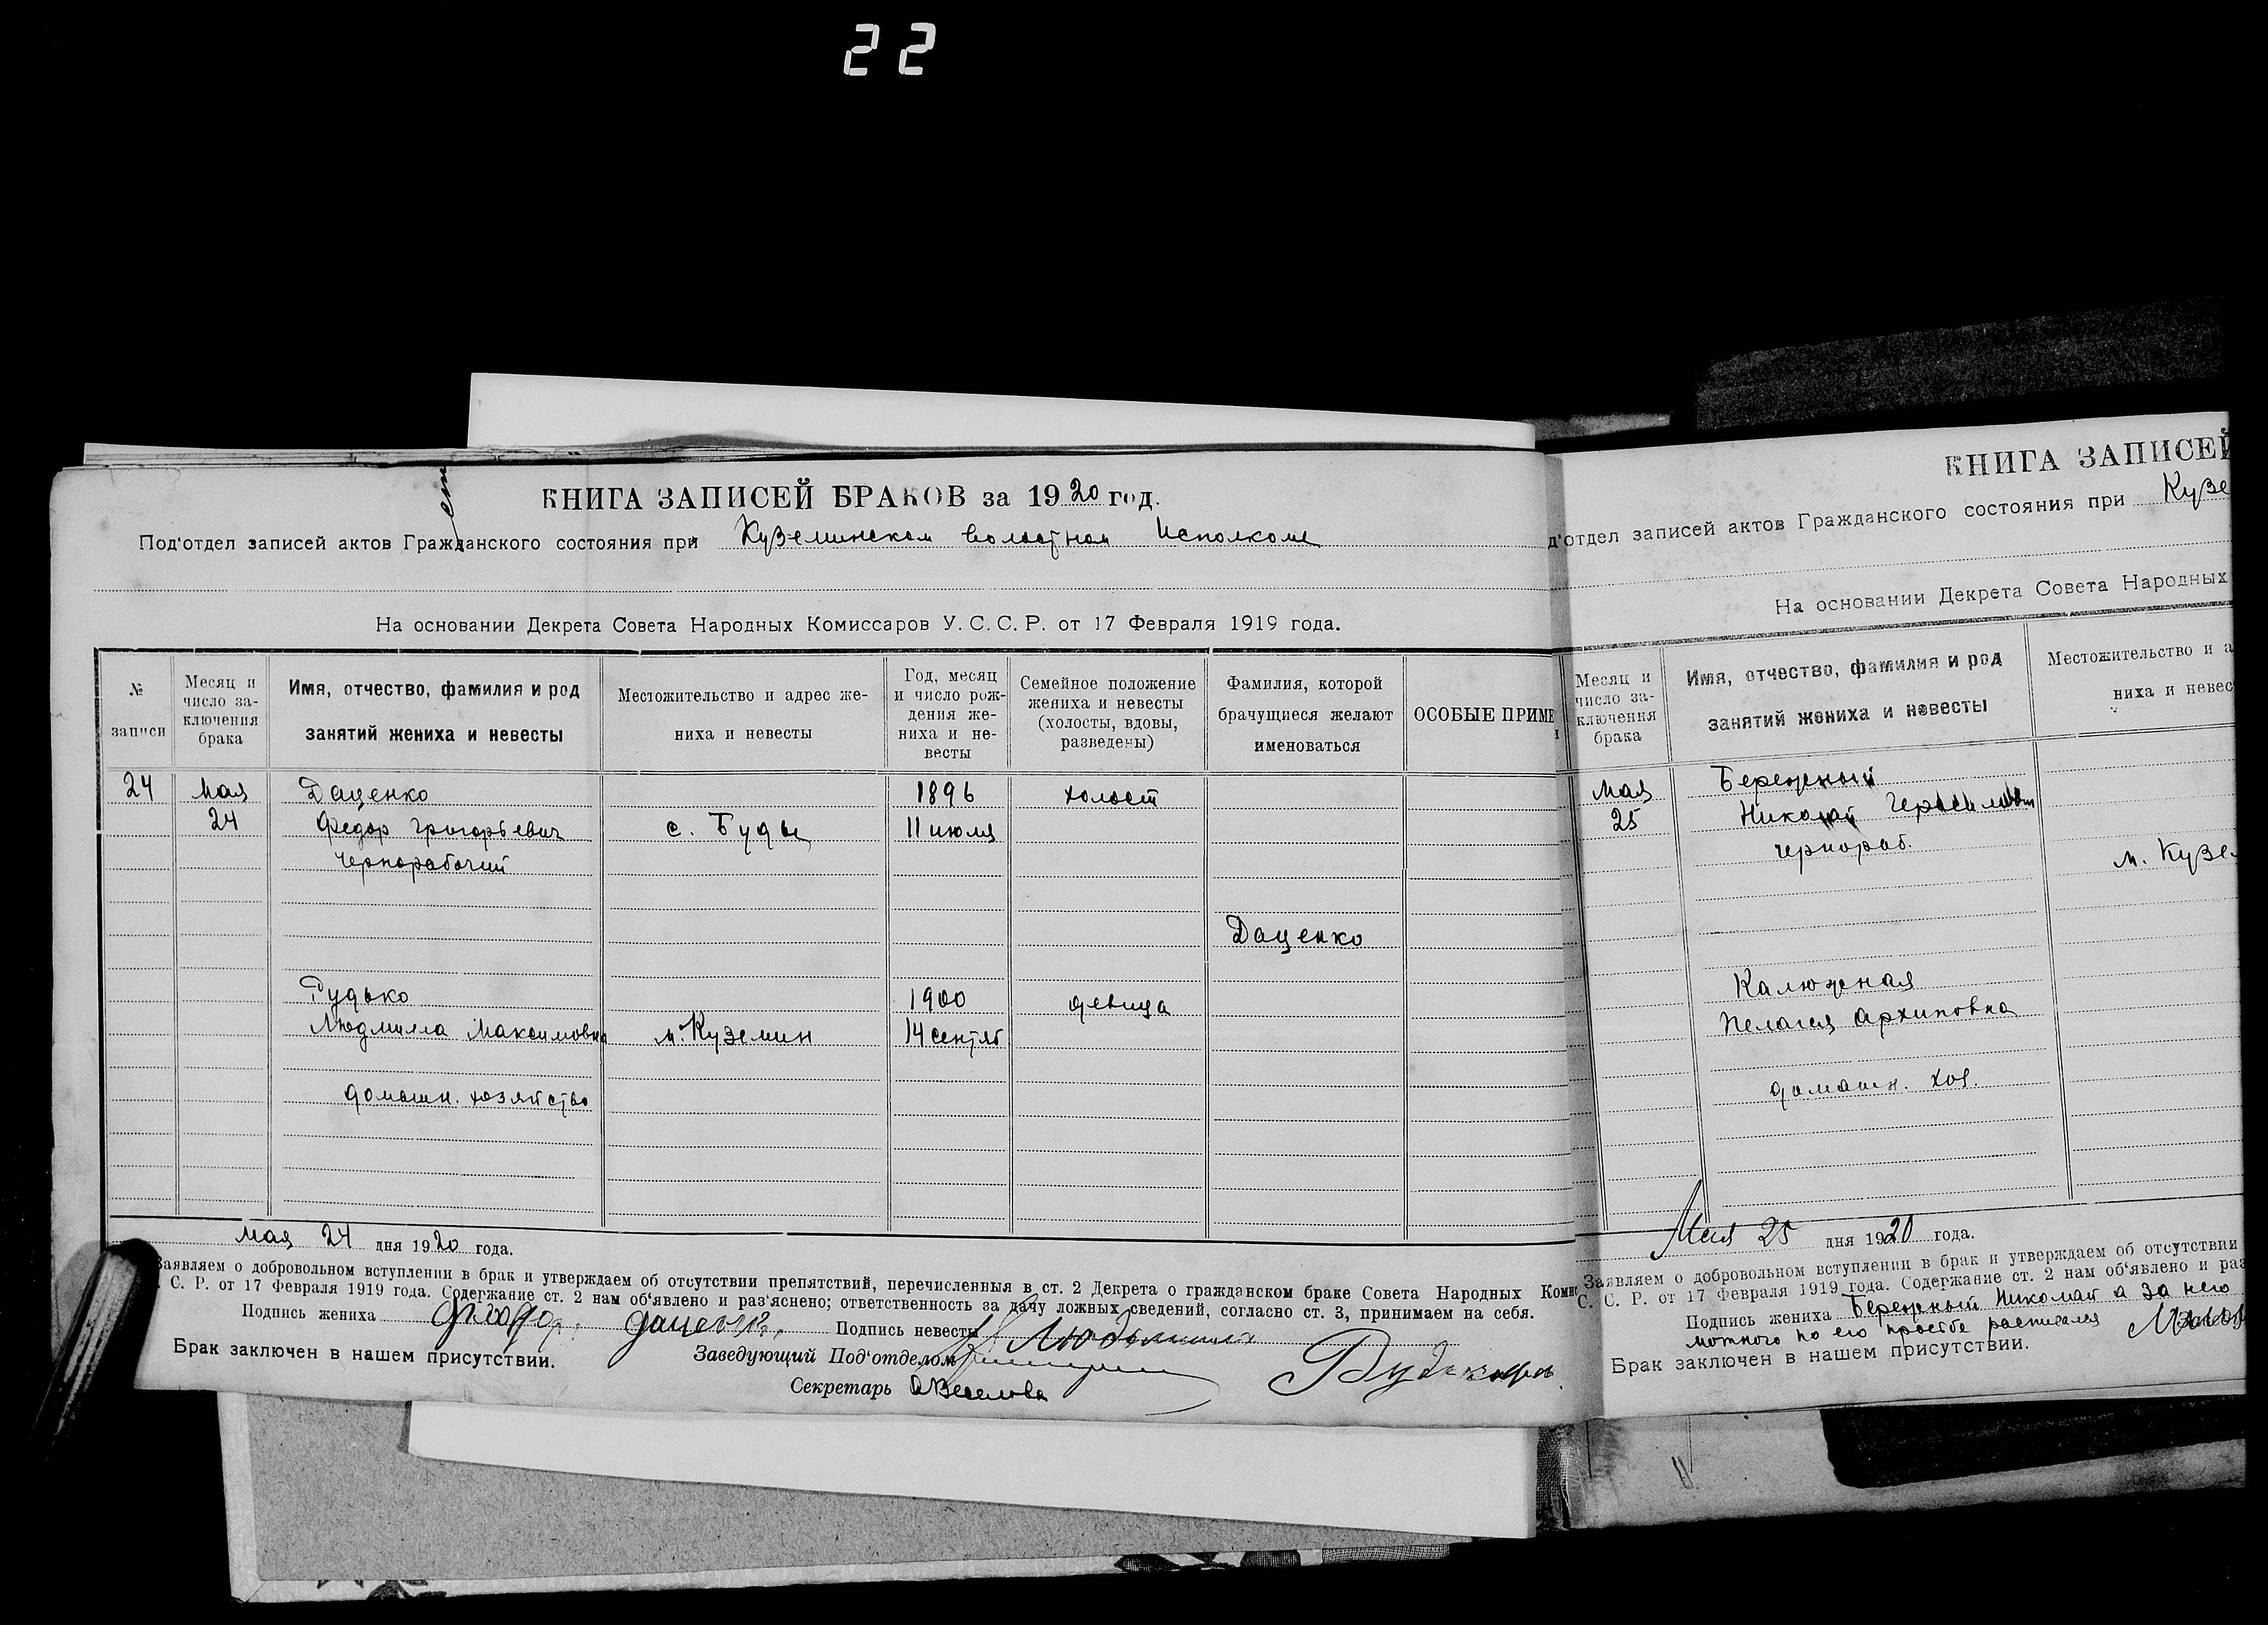 22
КНИГА ЗАПИСЕЙ БРАКОВ за 1920 год.
Под'отдел записей актов Гражданского состояния при Куземинском волостном Исполкоме
На основании Декрета Совета Народных Комиссаров У. С. С. Р. от 17 Февраля 1919 года.
№ записи
Месяц и число за-
ключения
брака
Имя, отчество, фамилия и род
занятий жениха и невесты
Местожительство и адрес же-
ниха и невесты
Год, месяц
и число рож-
дения же-
ниха и не-
весты
Семейное положение
жениха и невесты
(холосты, вдовы,
разведены)
Фамилия, которой
брачущиеся желают
именоваться
ОСОБЫЕ ПРИМЕ
24 Мая Даценко 1896 холост
24 Федор Григорьевич с. Буды 11 июля
Чернорабочий
Даценко
Рудько 1900 девица
Людмилла Максимовна м. Куземин 14 сентяб
домашн. хозяйство
Мая 24 дня 1920 года.
Заявляем о добровольном вступлении в брак и утверждаем об отсутствии препятствий, перечисленныя в ст. 2 Декрета о гражданском браке Совета Народных Комис
С. Р. от 17 Февраля 1919 года. Содержание ст. 2 нам об'явлено и раз'яснено; ответственность за дачу ложных сведений, согласно ст. 3, принимаем на себя.
Подпись жениха Подпись невесты
Брак заключен в нашем присутствии. Заведующий Под'отделом
Секретарь Веселова
КНИГА ЗАПИСЕЙ
д'отдел записей актов Гражданского состояния при Кузе
На основании Декрета Совета Народных
Месяц и
число за-
ключения
брака
Имя, отчество, фамилия и род
занятий жениха и невесты
Местожительство и а
ниха и невес
Мая Бережный
25 Николай Герасимович
чернораб.
м. Кузе
Калюжная
Пелагея Архиповна
домашн. хоз.
Мая 25 дня 1920 года.
Заявляем о добровольном вступлении в брак и утверждаем об отсутствии
С. С. Р. от 17 Февраля 1919 года. Содержание ст. 2 нам об'явлено и раз
Подпись жениха Бережный Николай а за него
по его просьбе расписался
Брак заключен в нашем присутствии.